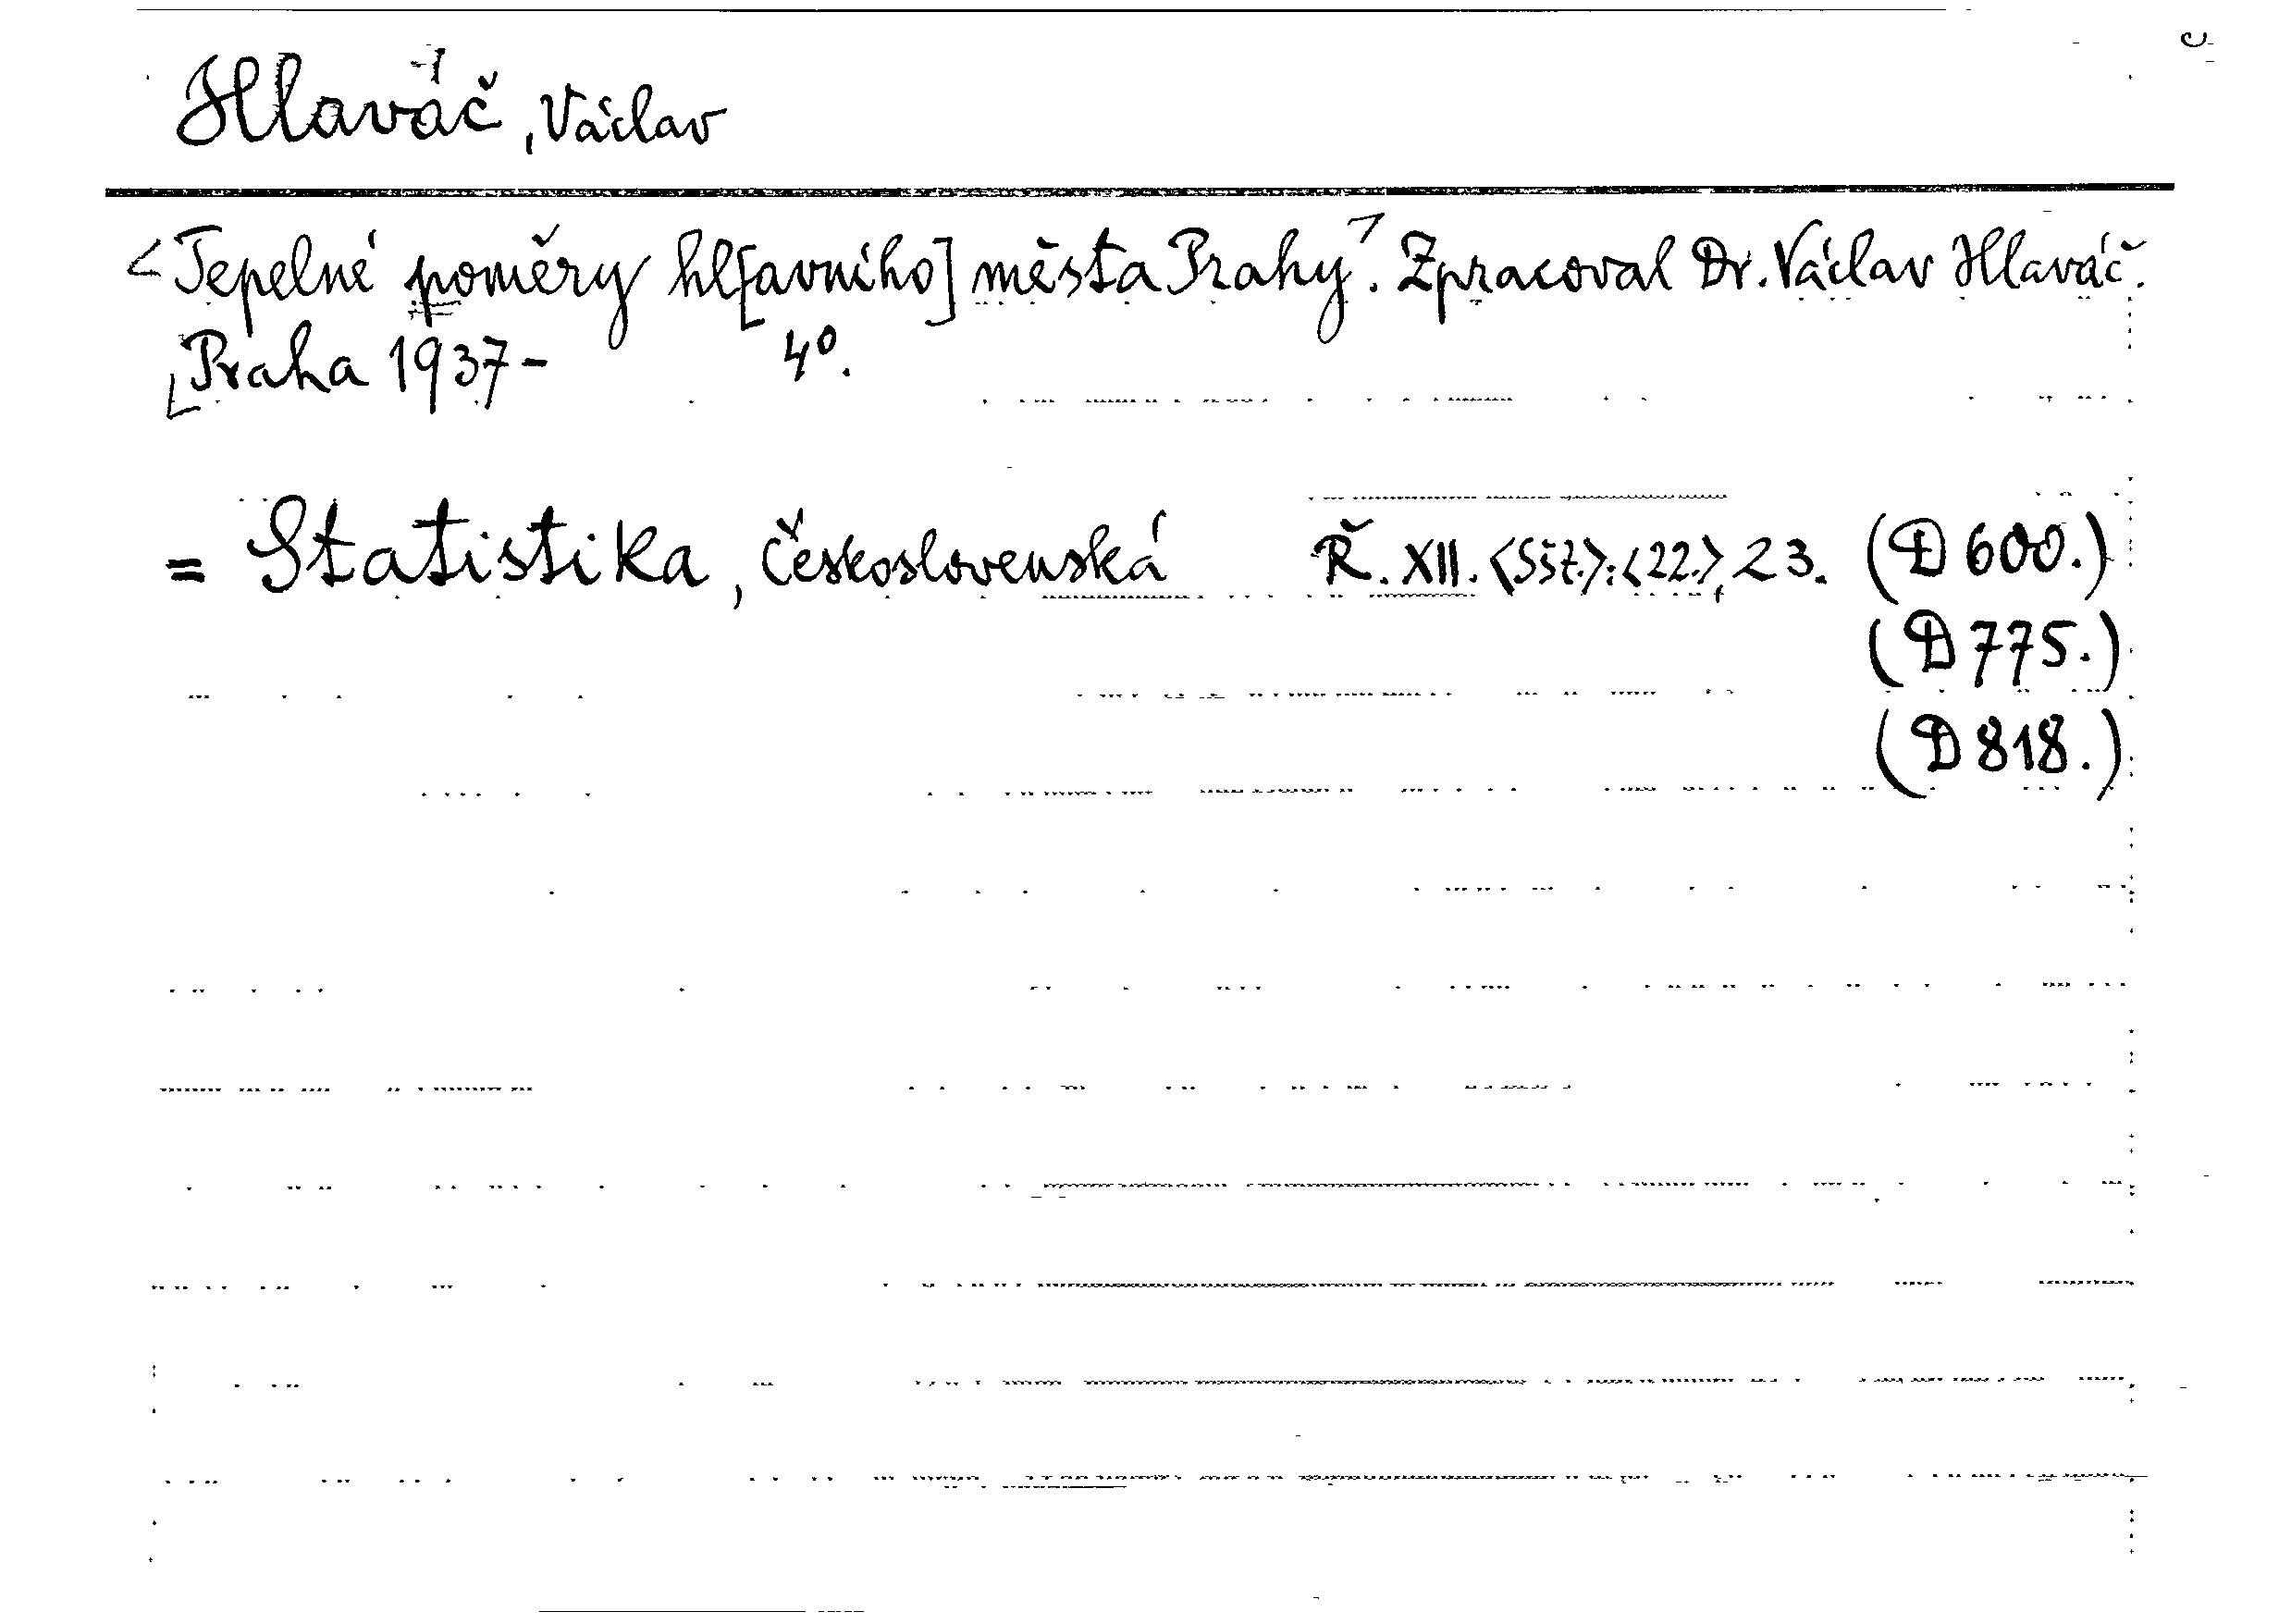 Hlaváč, Václav
<Tepelné poměry hl[avního] města Prahy>. Zpracoval Dr. Václav Hlaváč.
Praha 1937- 4°.
= Statistika, Československá Ř. XII. <Sšt.>: <22.>, 23. (D 600.)
(D 775.)
(D 818.)